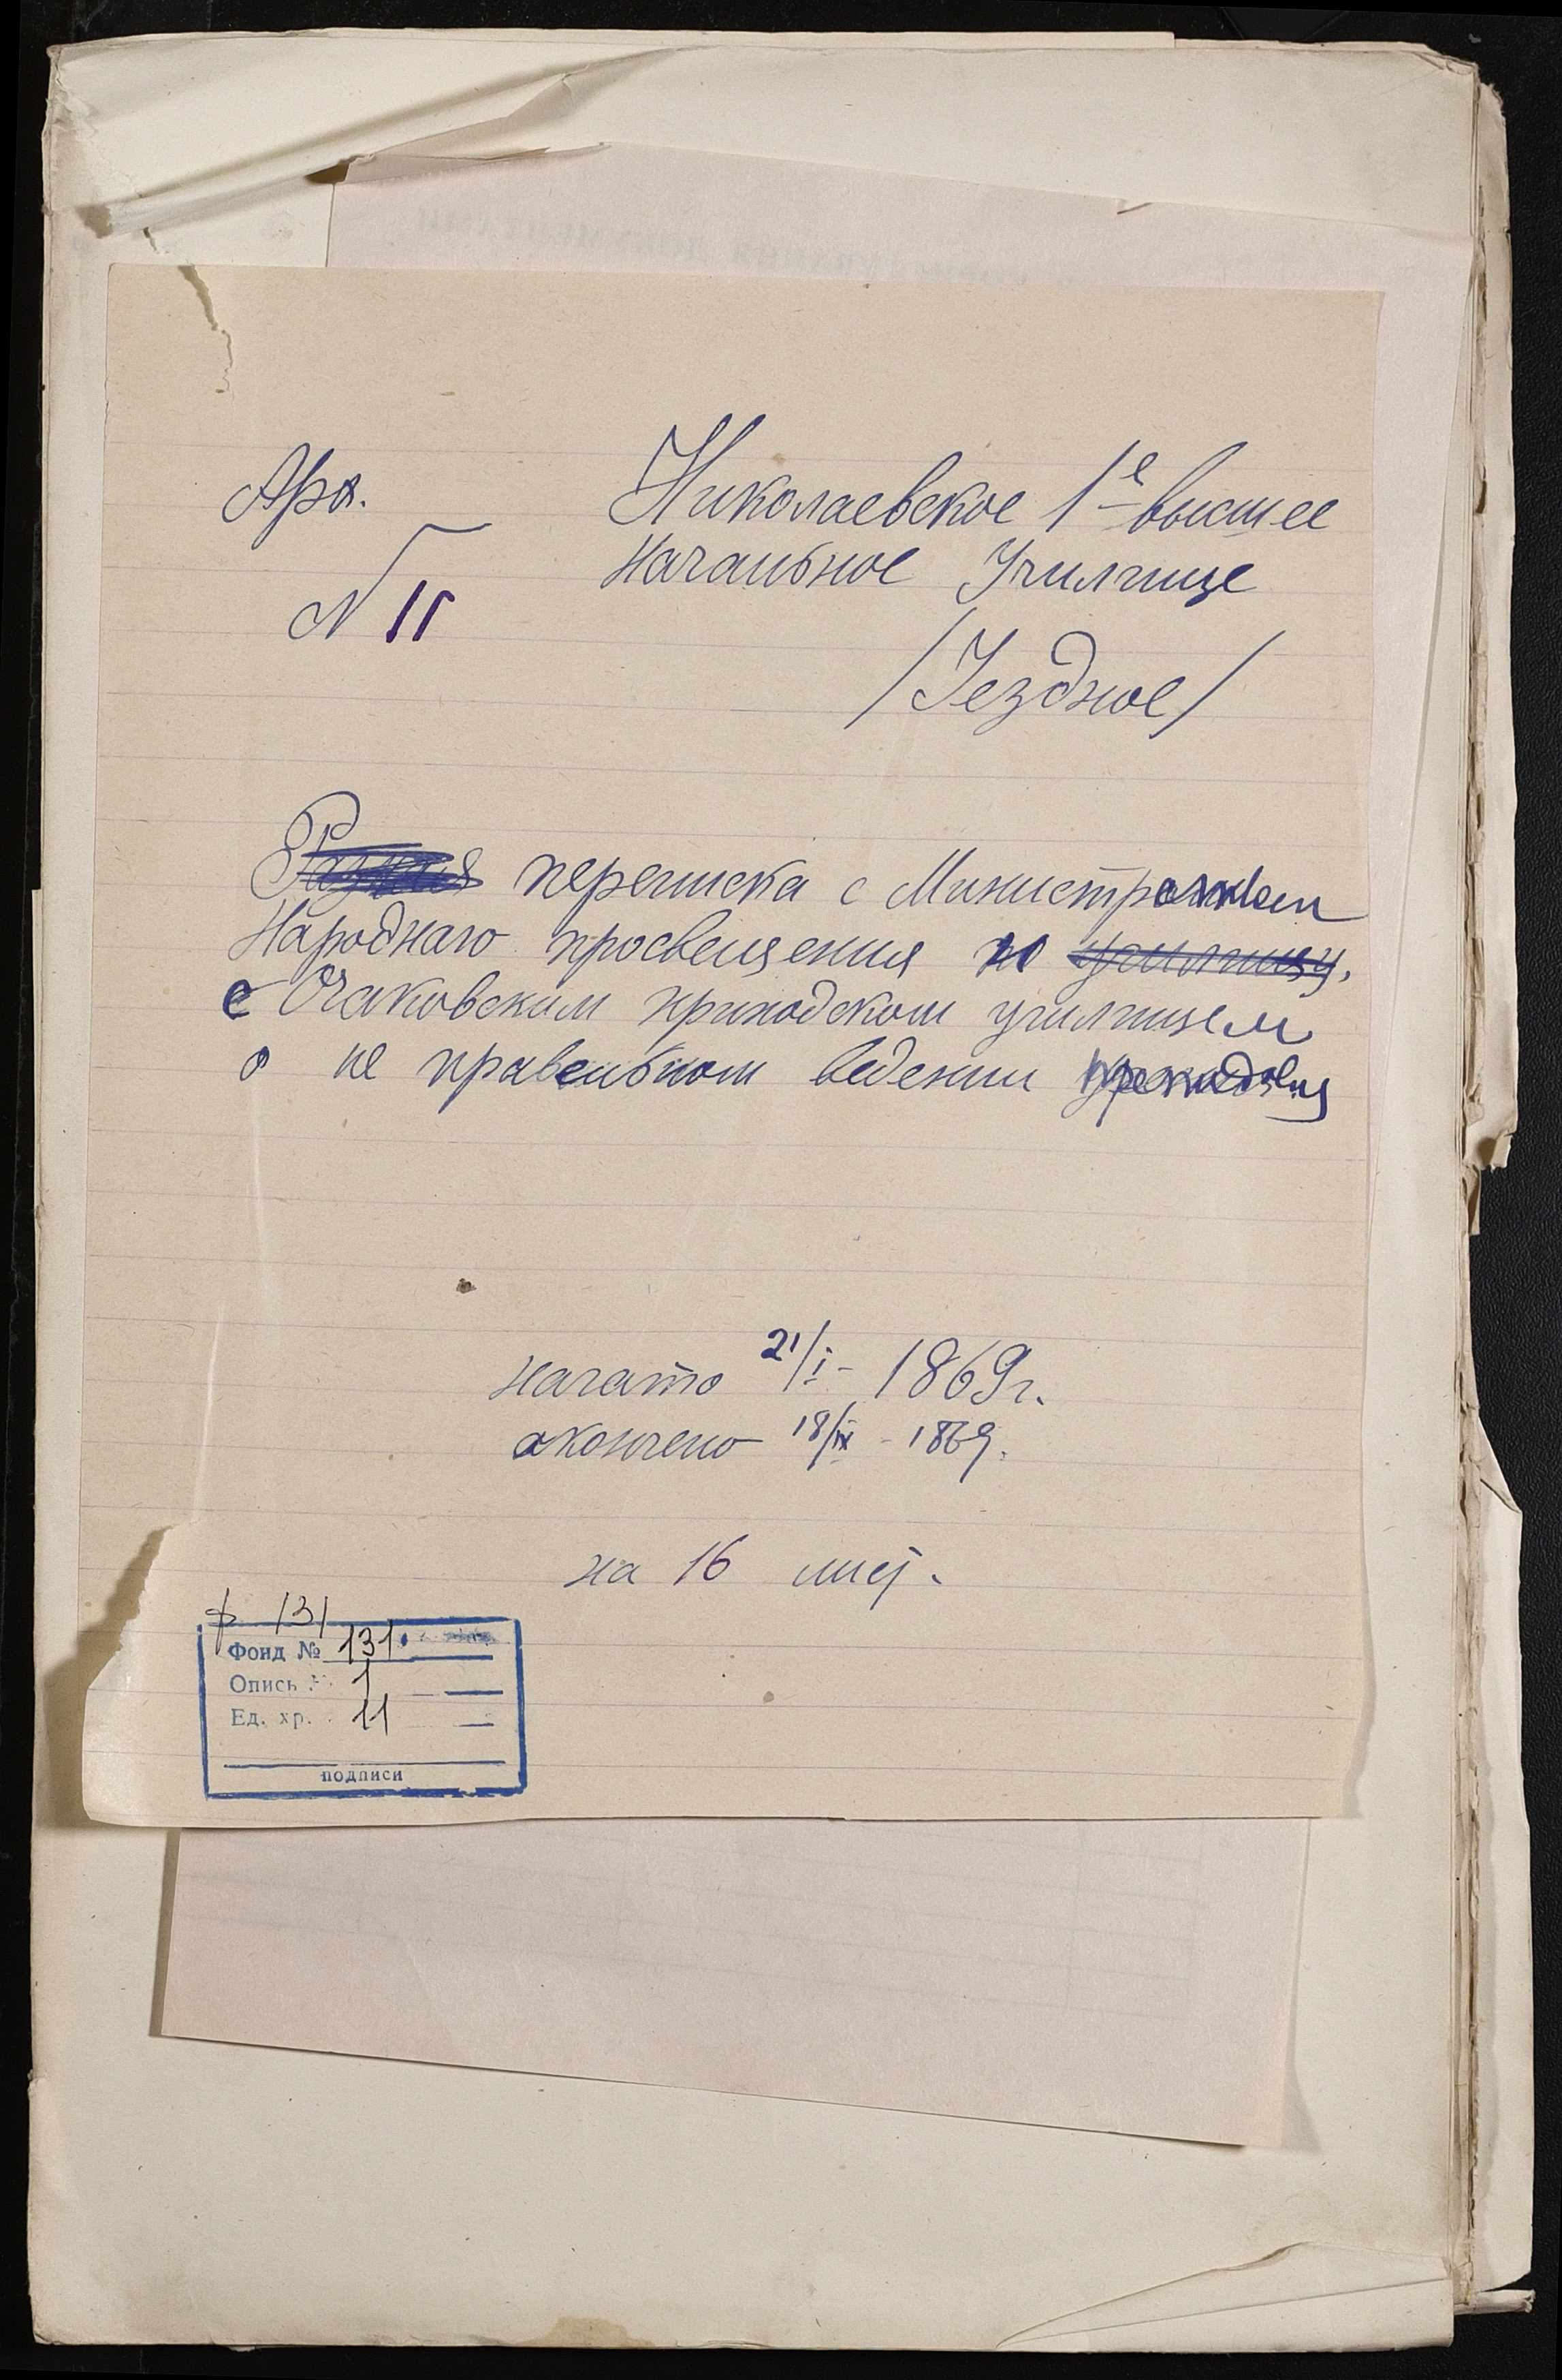 Арх.
N 11
Николаевское 1е высшее
начальное Училище
/Уездное/
Разная переписка с Министром
Народнаго просвещения по училищу.
с Очаковским приходском училищем
о не правельном ведении
начато 21/I - 1869 г.
окончено 18/IX - 1869.
на 16 лист.
ф 131
Фонд № 131
Опись № 1
Ед. хр. 11
подписи